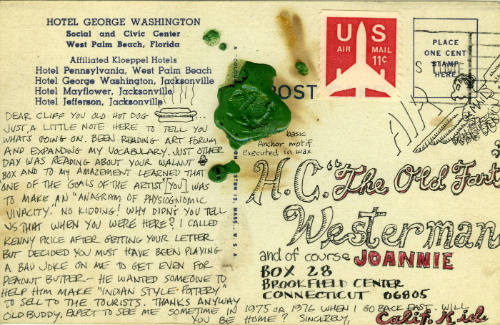 HOTEL GEORGE WASHINGTON
Social and Civic Center
West Palm Beach, Florida
Affiliated Kloeppel Hotels
Hotel Pennsylvania, West Palm Beach
Hotel George Washington, Jacksonville
Hotel Mayflower, Jacksonville
Hotel Jefferson, Jacksonville
DEAR CLIFF YOU OLD HOT DOG
JUST A LITTLE NOTE HERE TO TELL YOU
WHATS GOING ON. BEEN READING ART FORUM
AND EXPANDING MY VOCABULARY. JUST OTHER
DAY WAS READING ABOUT YOUR WALNUT
BOX AND TO MY AMAZEMENT LEARNED THAT
ONE OF THE GOALS OF THE ARTIST [YOU] WAS
TO MAKE AN "ANAGRAM OF PHYSIOGNOMIC
VIVACITY." NO KIDDING! WHY DIDN'T YOU TELL
US THAT WHEN YOU WERE HERE? I CALLED
KENNY PRICE AFTER GETTING YOUR LETTER
BUT DECIDED YOU MUST HAVE BEEN PLAYING
A BAD JOKE ON ME TO GET EVEN FOR
PEANUT BUTTER - HE WANTED SOMEONE TO
HELP HIM MAKE "INDIAN STYLE POTTERY"
TO SELL TO THE TOURISTS. THANKS ANYWAY
OLD BUDDY. EXPECT TO SEE ME SOMETIME IN
1975 or 1976 WHEN I GO BACK EAST. WILL
YOU BE HOME? SINCERELY,
Calif. Kid
POST
basic
Anchor motif
executed in wax
US
AIR MAIL
11¢
PLACE
ONE CENT
STAMP
HERE
AIR
H.C. "The Old Fart"
Westerman
and of course JOANNIE
BOX 28
BROOKFIELD CENTER
CONNECTICUT 06805